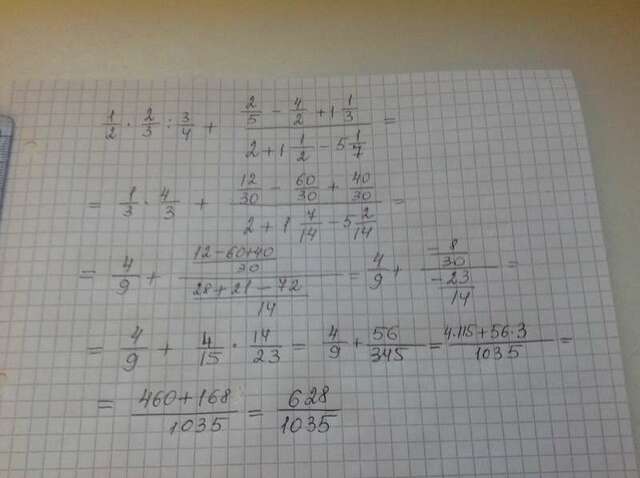 1/2 · 2/3 : 3/4 + (2/5 - 4/2 + 1 1/3)/(2 + 1 1/2 - 5 1/7) =
= 1/3 · 4/3 + (12/30 - 60/30 + 40/30)/(2 + 1 7/14 - 5 2/14) =
= 4/9 + ((12-60+40)/30)/((28+21-72)/14) = 4/9 + (-8/30)/(-23/14) =
= 4/9 + 4/15 · 14/23 = 4/9 + 56/345 = (4·115+56·3)/1035 =
= (460+168)/1035 = 628/1035